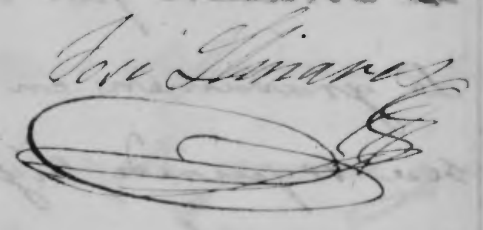 José Llinares